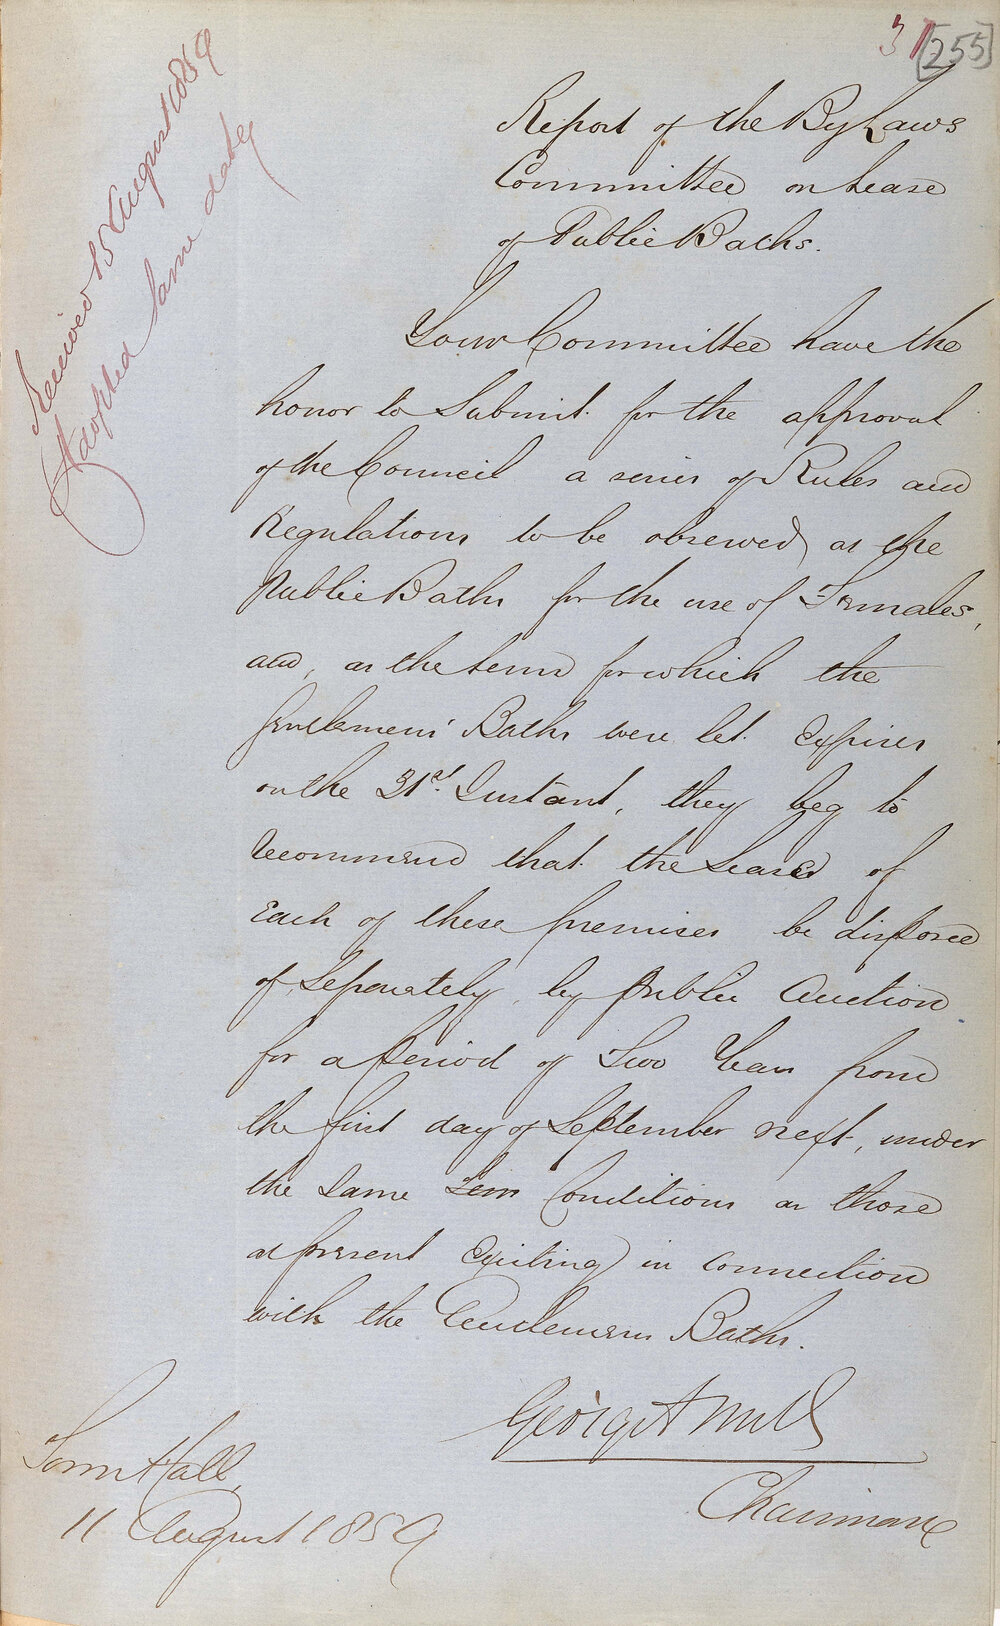 31
[255]
Received 15 August 1859
Adopted same date
Report of the By Laws
Committee on Lease
of Public Baths.
Your Committee have the
honor to Submit for the approval
of the Council a series of Rules and
Regulations to be observed at the
Public Baths for the use of Females,
and, as the term for which the
Gentlemens' Baths were let expires
on the 31st. Instant, they beg to
recommend that the Leases of
Each of these premises be disposed
of Separately by Public Auction
for a Period of Two Years from
the first day of September next, under
the Same Term Conditions as those
at present Existing in connection
with the Gentlemens Baths.
George A
Chairman
Town Hall,
11 August 1859